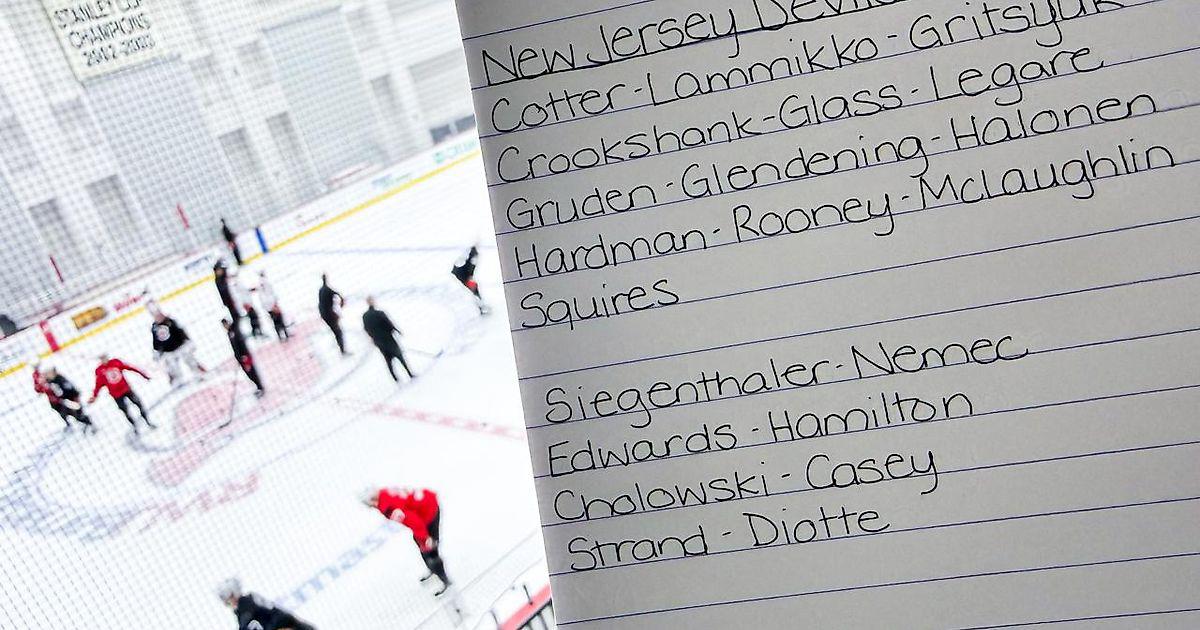 STANLEY CUP
CHAMPIONS
2002-2003
New Jersey Devils
Cotter-Lammikko-Gritsyuk
Crookshank-Glass-Legare
Gruden-Glendening-Halonen
Hardman-Rooney-McLaughlin
Squires
Siegenthaler-Nemec
Edwards-Hamilton
Cholowski-Casey
Strand-Diotte